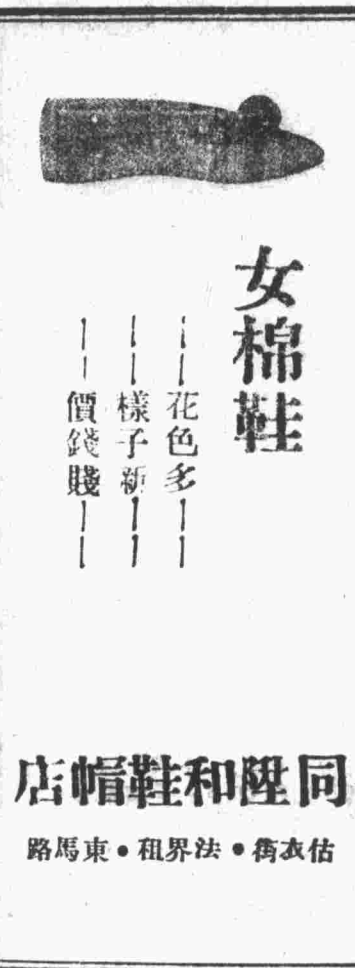 女棉鞋
花色多
樣子新
價錢賤
同陞和鞋帽店
估衣街·法界租·東馬路